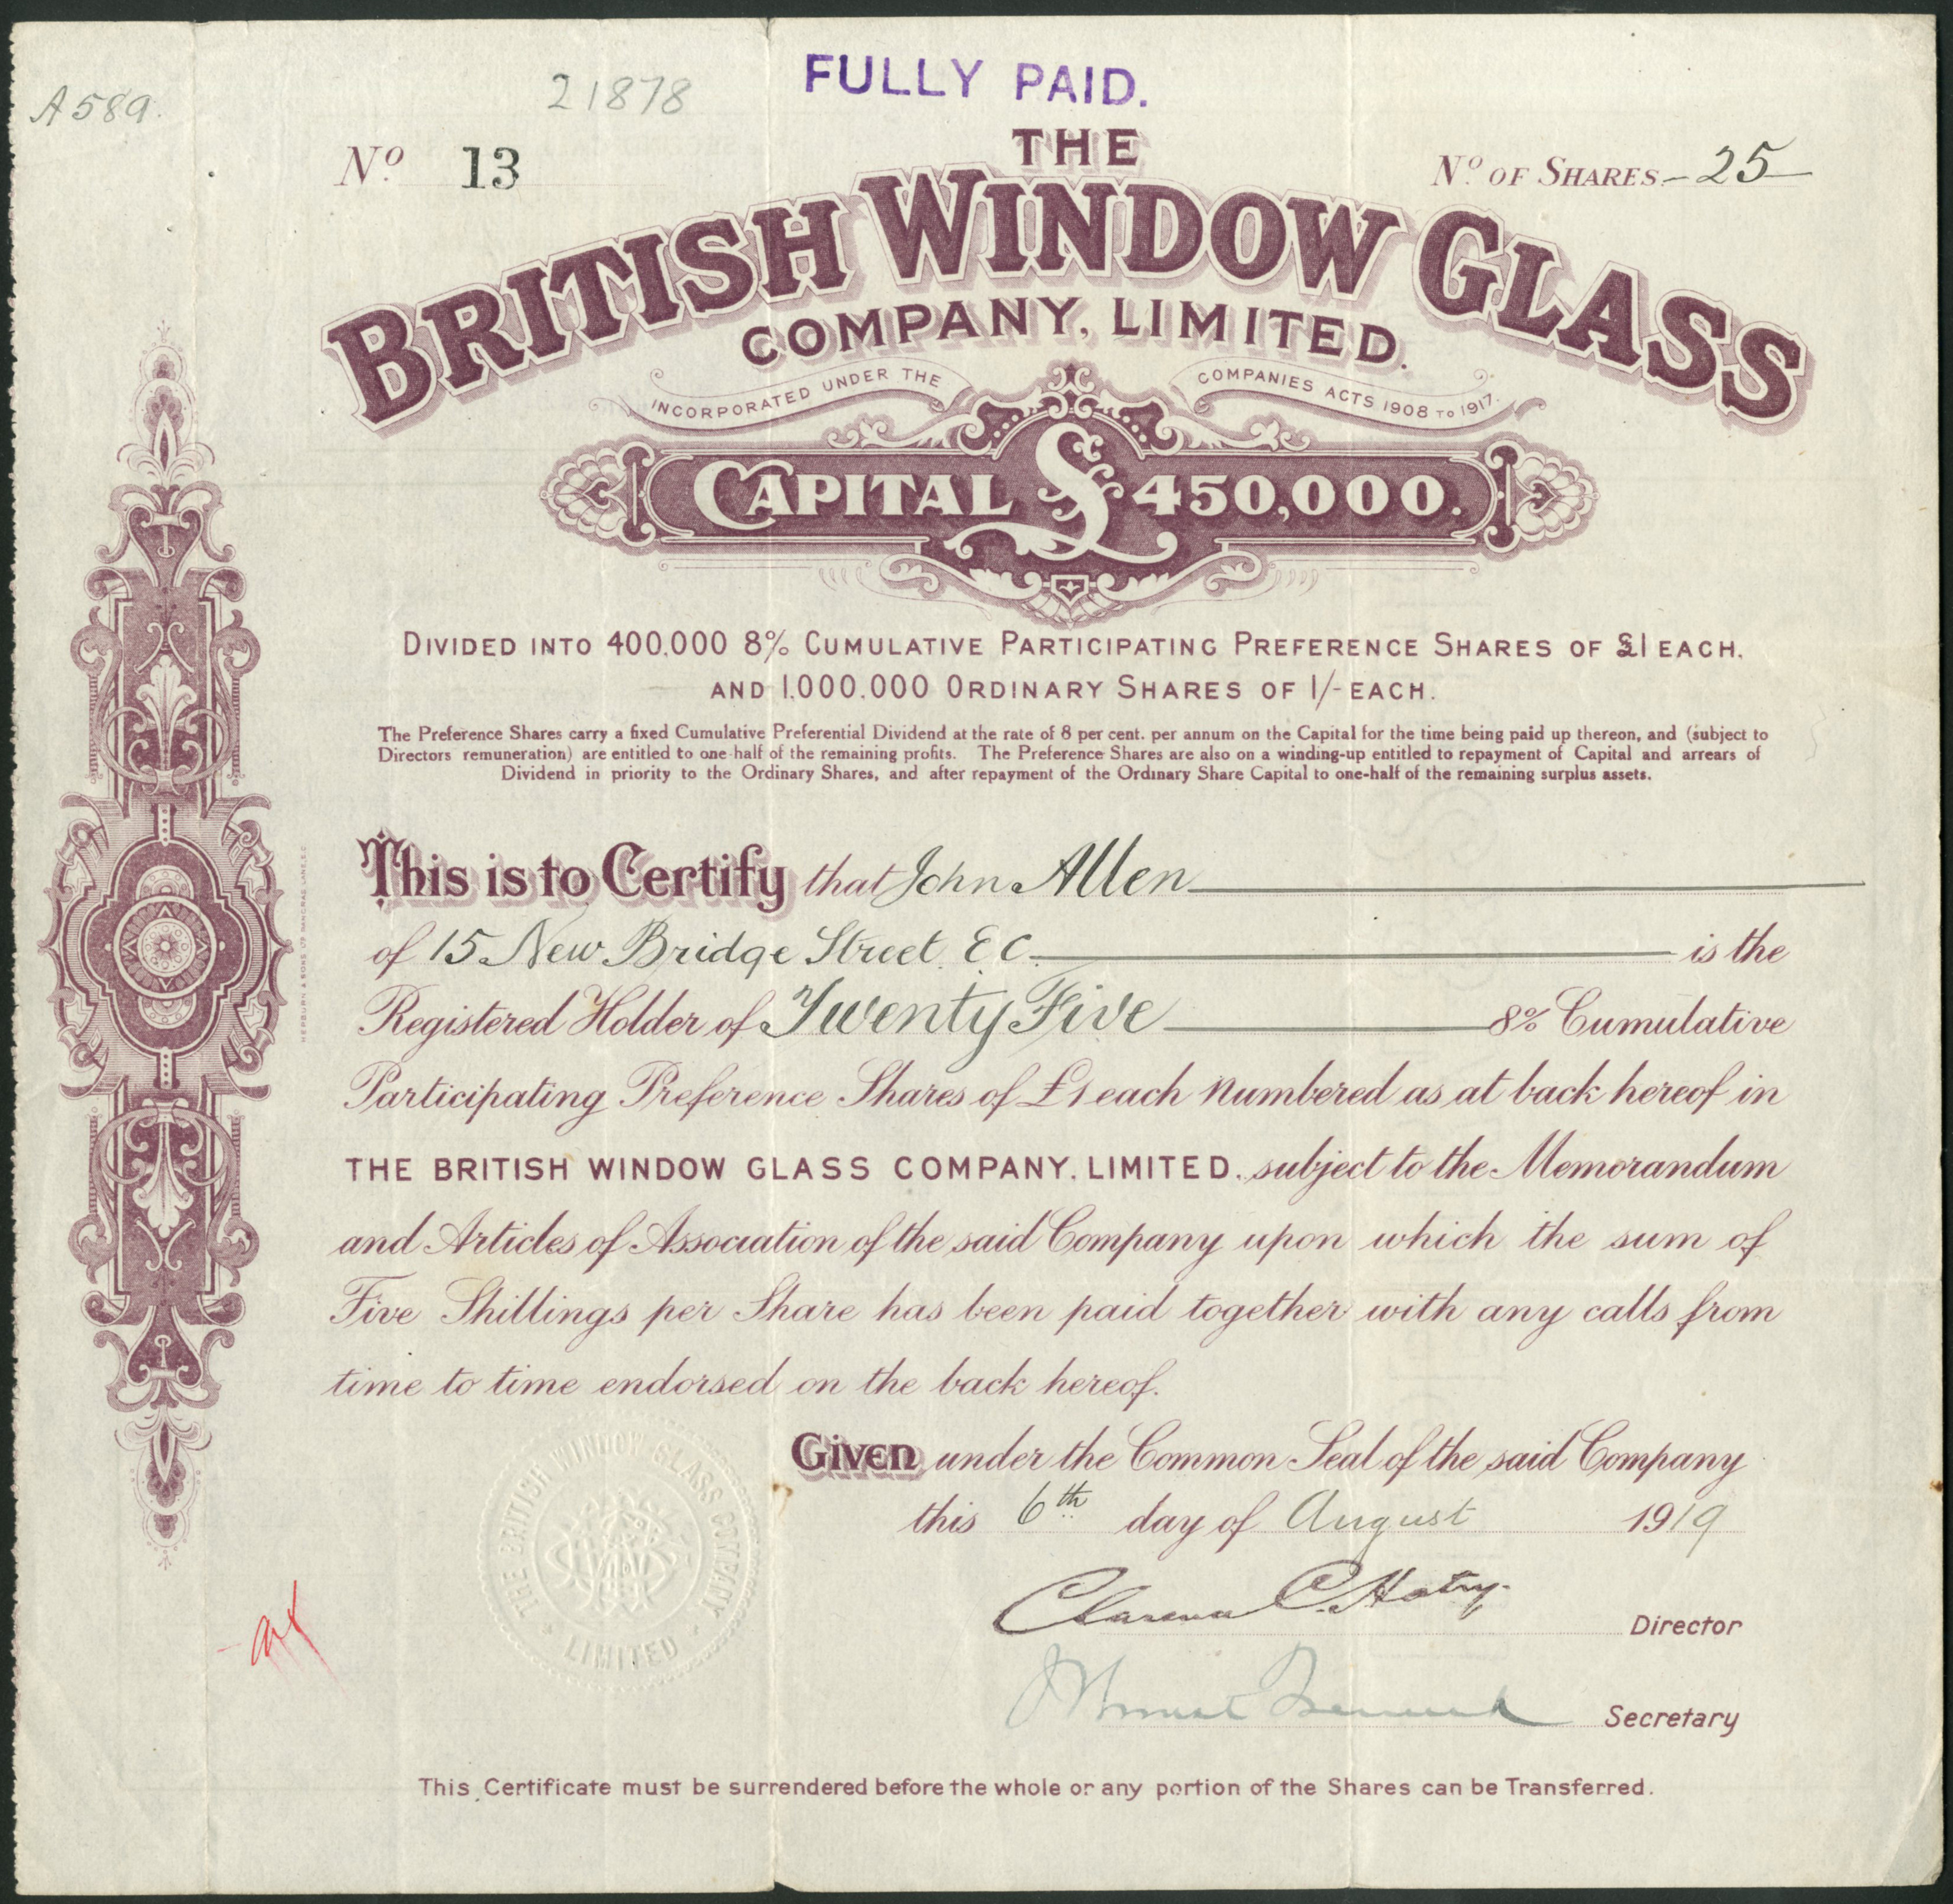 A 589.
21878
FULLY PAID.
Nº 13
Nº OF SHARES 25
THE
BRITISH WINDOW GLASS
COMPANY, LIMITED.
INCORPORATED UNDER THE COMPANIES ACTS 1908 TO 1917.
CAPITAL £450,000.
DIVIDED INTO 400,000 8% CUMULATIVE PARTICIPATING PREFERENCE SHARES OF £1 EACH.
AND 1,000,000 ORDINARY SHARES OF 1/- EACH.
The Preference Shares carry a fixed Cumulative Preferential Dividend at the rate of 8 per cent. per annum on the Capital for the time being paid up thereon, and (subject to
Directors remuneration) are entitled to one half of the remaining profits. The Preference Shares are also on a winding-up entitled to repayment of Capital and arrears of
Dividend in priority to the Ordinary Shares, and after repayment of the Ordinary Share Capital to one-half of the remaining surplus assets.
This is to Certify that John Allen
of 15 New Bridge Street. E C. is the
Registered Holder of Twenty Five 8% Cumulative
Participating Preference Shares of £1 each numbered as at back hereof in
THE BRITISH WINDOW GLASS COMPANY, LIMITED, subject to the Memorandum
and Articles of Association of the said Company upon which the sum of
Five Shillings per Share has been paid together with any calls from
time to time endorsed on the back hereof.
GIVEN under the Common Seal of the said Company
this 6th day of August 1919
THE BRITISH WINDOW GLASS COMPANY
LIMITED
Clarence C. Hatry.
Director
Secretary
This Certificate must be surrendered before the whole or any portion of the Shares can be Transferred.